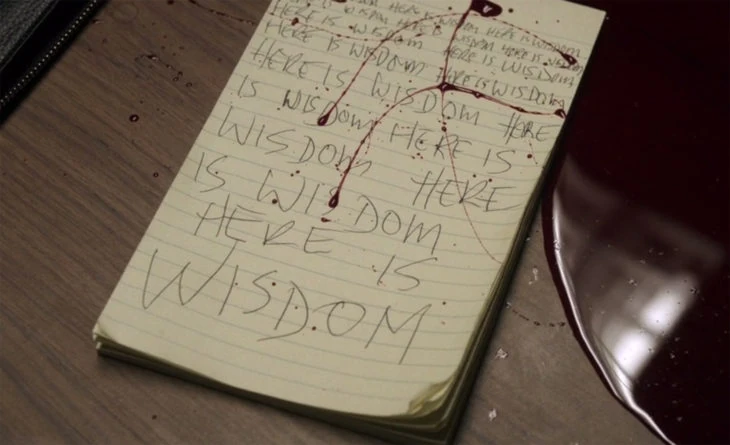 HERE IS WISDOM HERE IS WISDOM
IS WISDOM HERE IS WISDOM HERE IS WISDOM
HERE IS WISDOM HERE IS WISDOM
HERE IS WISDOM HERE IS WISDOM
HERE IS WISDOM HERE
IS WISDOM HERE IS
WISDOM HERE
IS WISDOM
HERE IS
WISDOM